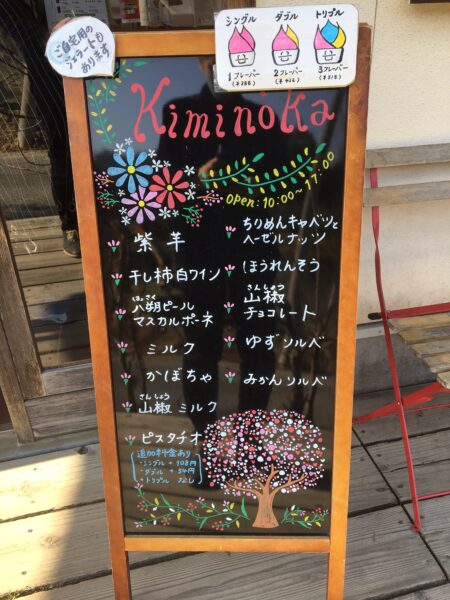 ご自宅用の
ジェラートも
あります
シングル
ダブル
トリプル
1フレーバー
2フレーバー
3フレーバー
Kiminoka
OPEN:10:00~17:00
紫芋
干し柿白ワイン
はっさく
八朔ピール
マスカルポーネ
ミルク
かぼちゃ
さんしょう
山椒ミルク
ピスタチオ
追加料金あり
・シングル+108円
・ダブル+54円
・トリプル なし
ちりめんキャベツと
ヘーゼルナッツ
ほうれんそう
さんしょう
山椒
チョコレート
ゆずソルベ
みかんソルベ